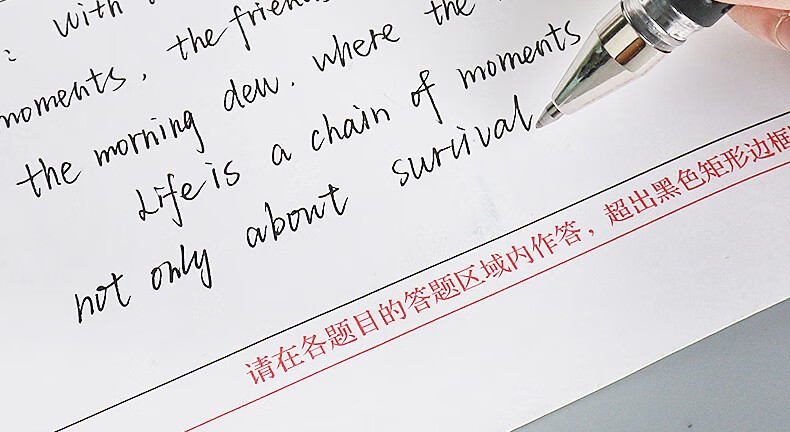 : with
moments, the friends
the morning dew. where the
Life is a chain of moments
not only about survival
请在各题目的答题区域内作答，超出黑色矩形边框